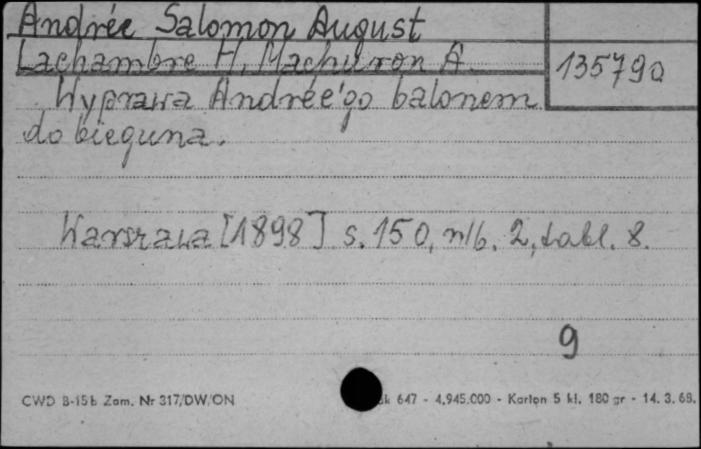 Andrée Salomon August
Lachambre H, Machuron A.
135790
Wyprawa Andrée'go balonem
do bieguna.
Warszawa [1898] s. 150, nlb. 2, tabl. 8.
9
CWD B-15b Zam. Nr 317/DW/ON
647 - 4.945.000 - Karton 5 kl. 180 gr - 14. 3. 68.